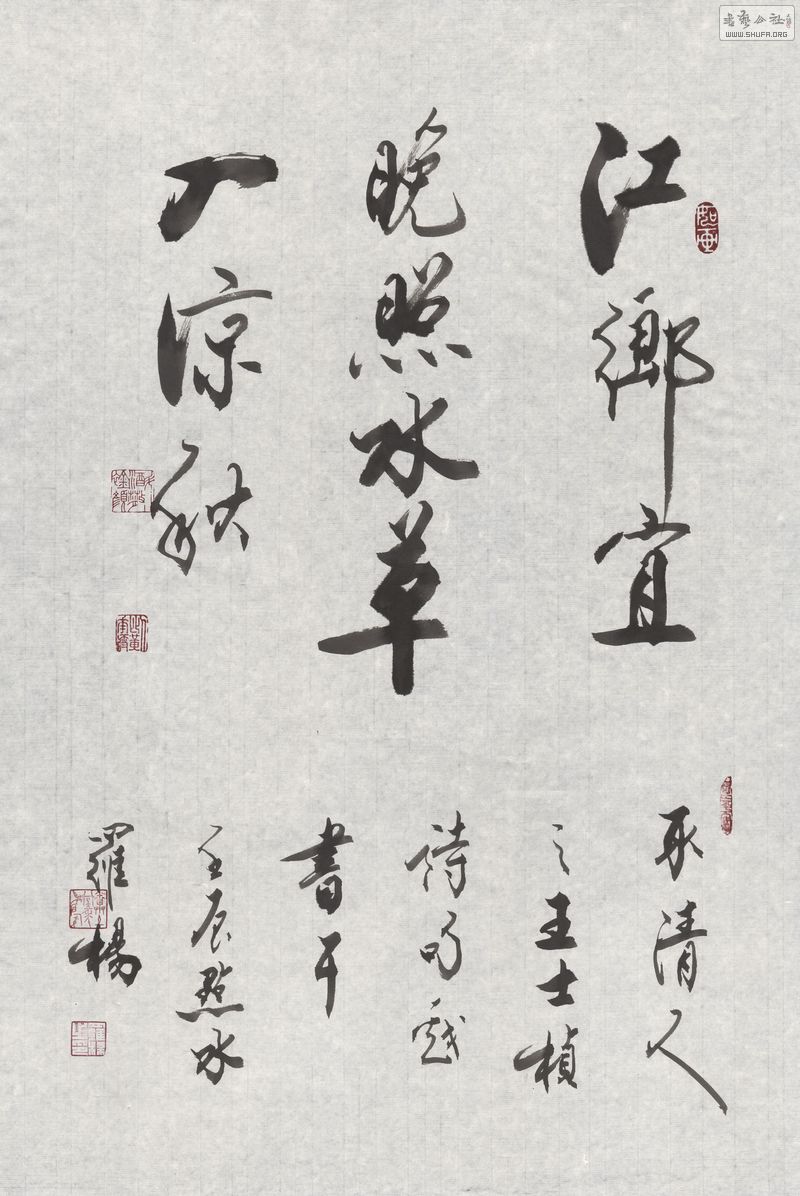 江鄉宜
晚照水草
入涼秋
取清人
之王士楨
詩句戲
書于
壬辰點水
羅楊
書藝公社
WWW.SHUFA.ORG